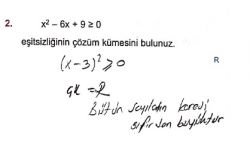 2. x² – 6x + 9 ≥ 0
eşitsizliğinin çözüm kümesini bulunuz.
(x-3)² ≥ 0
R
ÇK = R
Bütün sayıların karesi
sıfırdan büyüktür